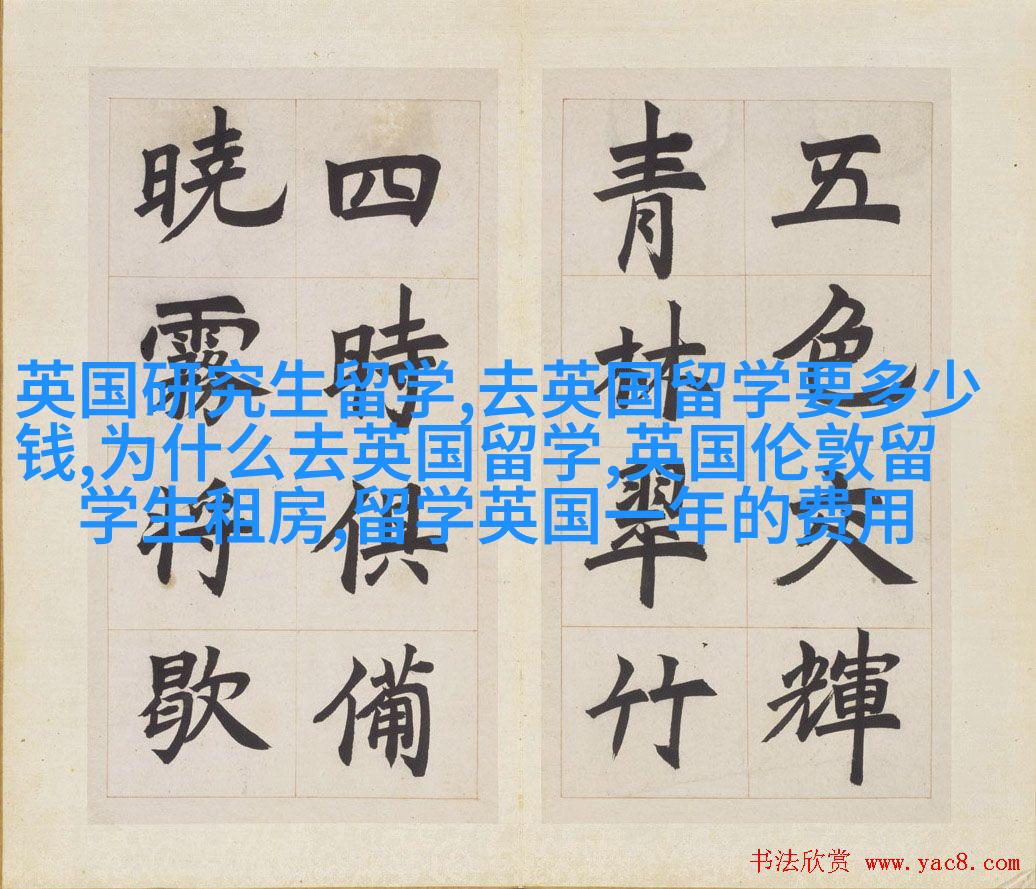 五色交輝
青林翠竹
四時俱備
曉霧將歇
英国研究生留学,去英国留学要多少
钱,为什么去英国留学,英国伦敦留
学生租房,留学英国一年的费用
书法欣赏 www.yac8.com